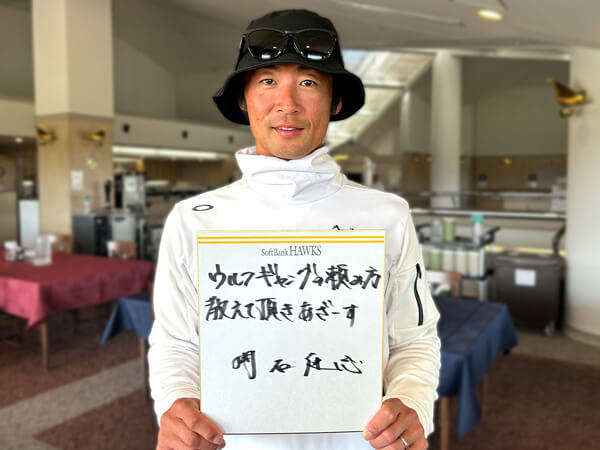 SoftBank HAWKS
ウルフギャングの頼み方
教えて頂きあざーす
明石健志